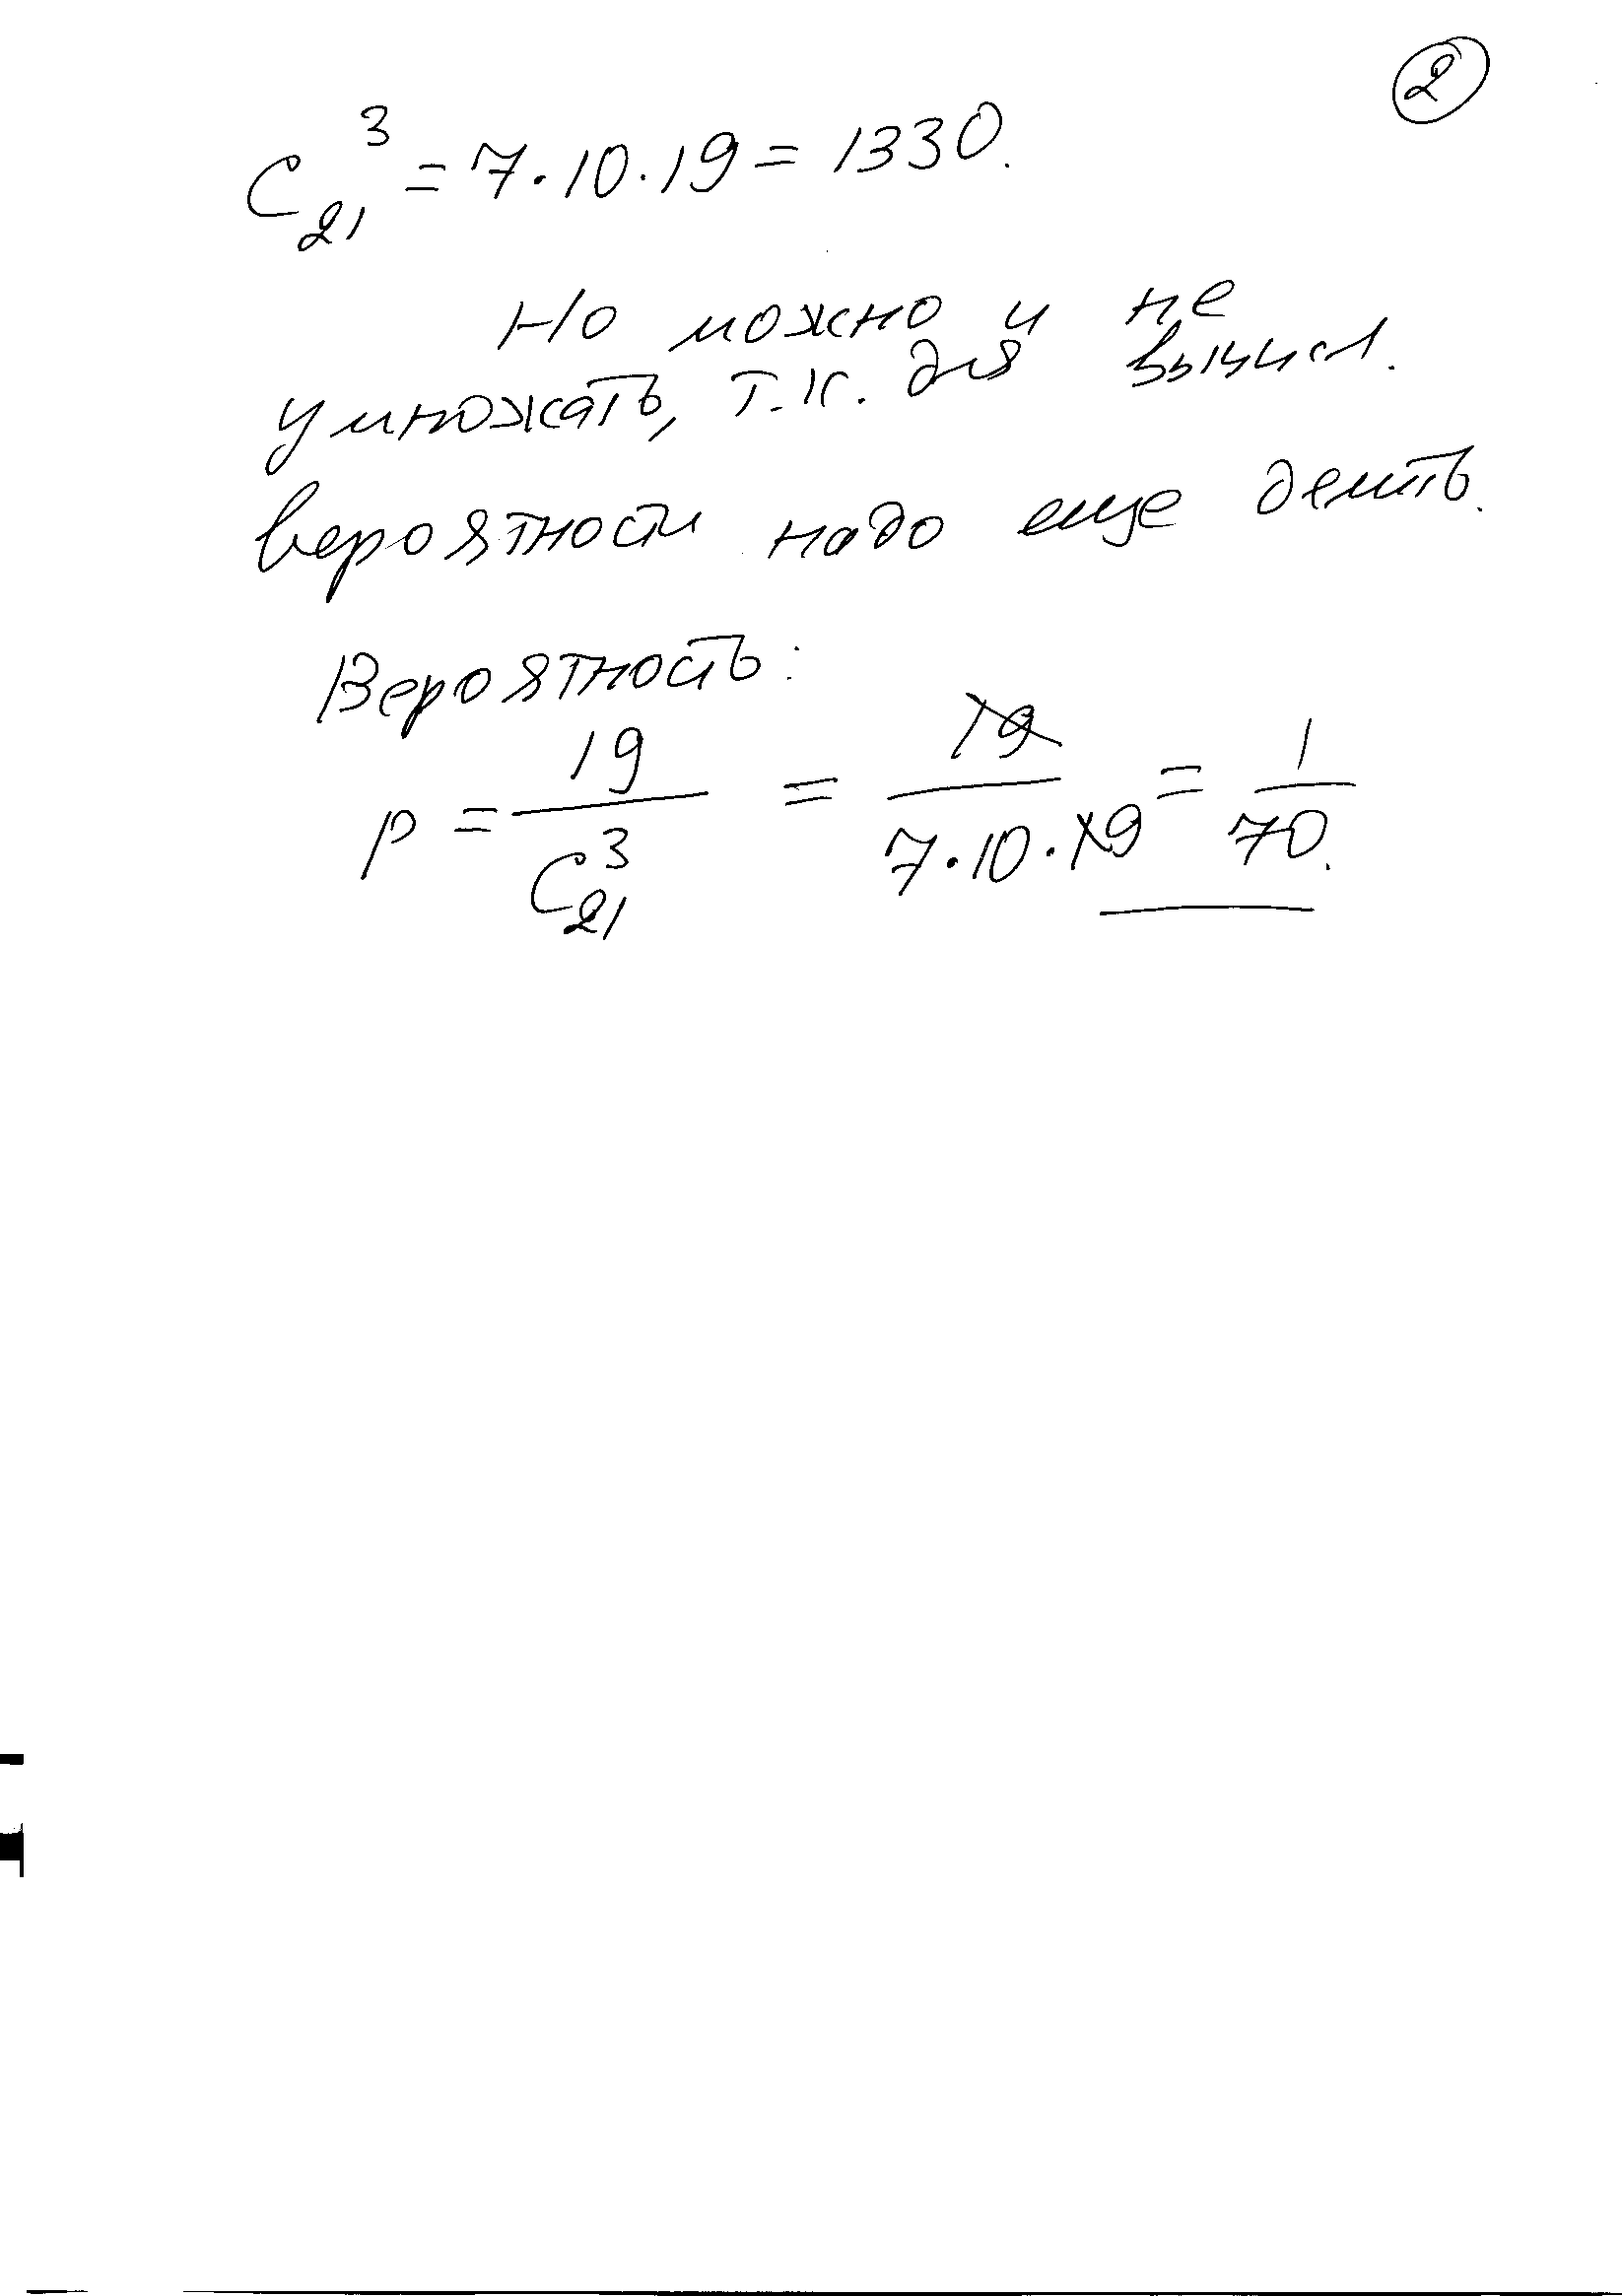 2
C₂₁³ = 7·10·19 = 1330.
Но можно и не
умножать, т.к. для вычисл.
вероятности надо еще делить.
Вероятность:
p = 19 / C₂₁³ = 19 / 7·10·19 = 1 / 70.